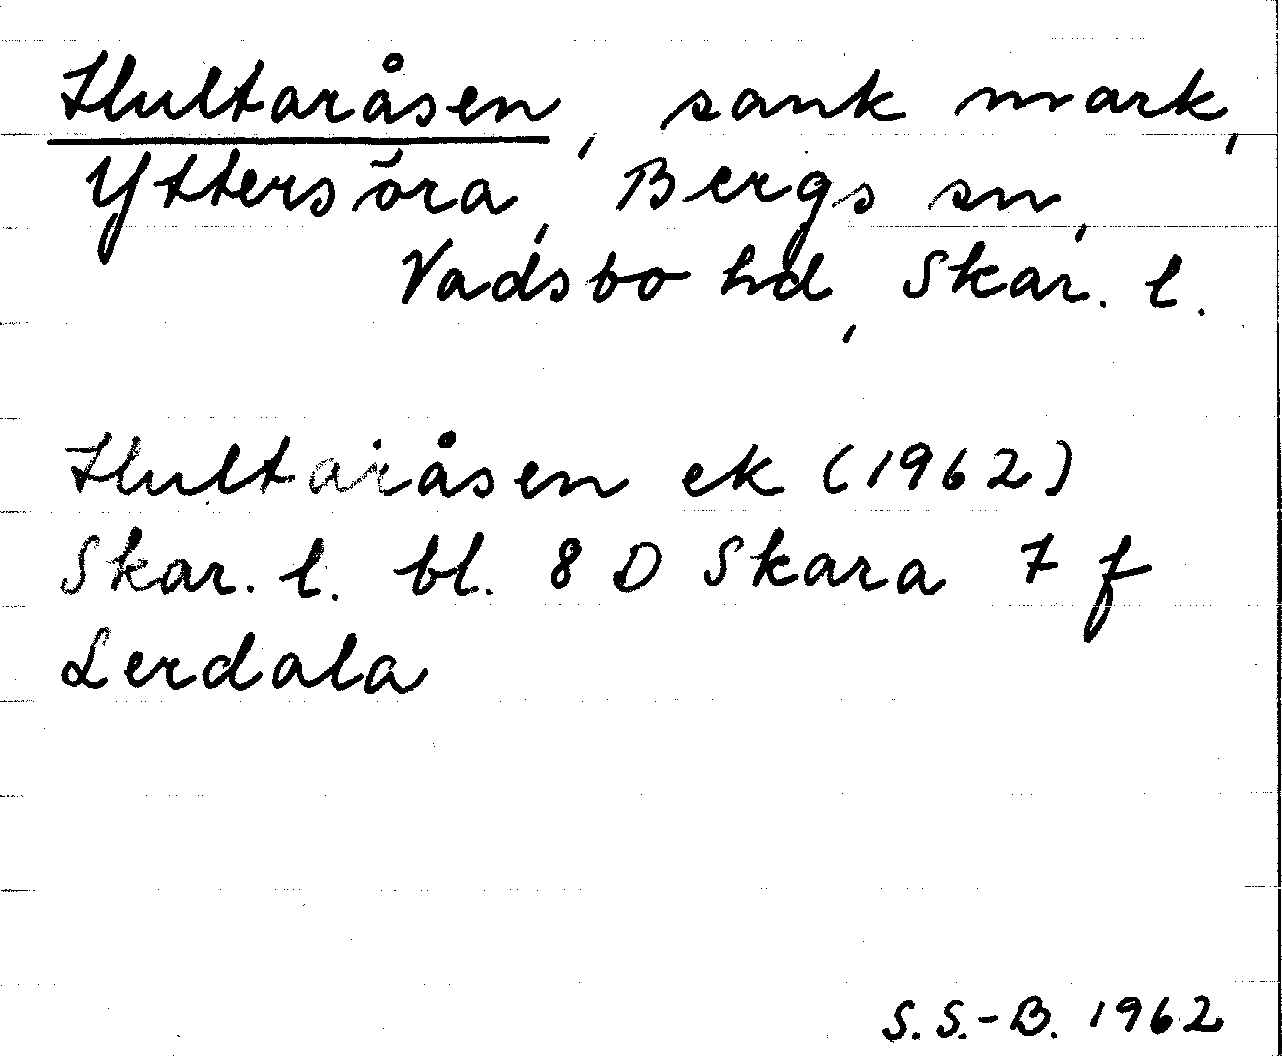 Hultaråsen, sank mark,
Yttersöra, Bergs sn,
Vadsbo hd, Skar. l.
Hultaråsen ek (1962)
Skar. l. bl. 8 D Skara 7 f
Lerdala
S.S.-B. 1962